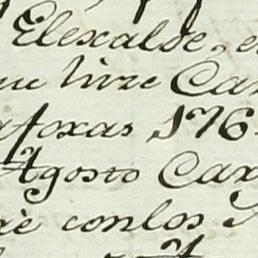 Elexalde, e
ue hize Ca
afoxas 176
Agosto Car
rè conlos